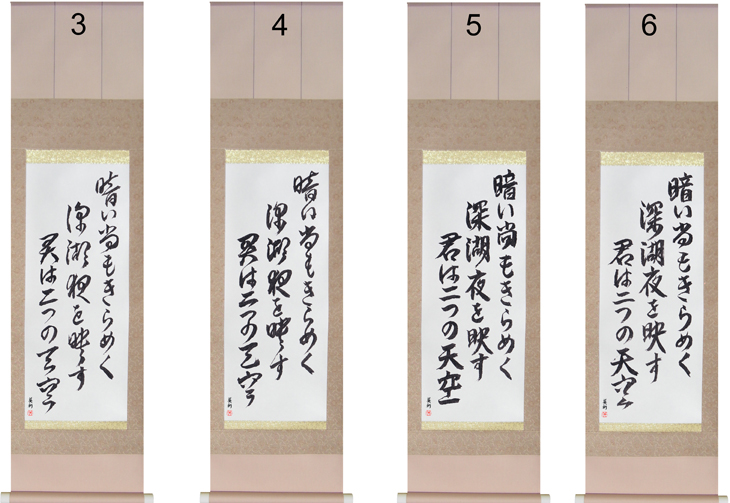 3
暗い尚もきらめく
深湖夜を映す
君は二つの天空
4
暗い尚もきらめく
深湖夜を映す
君は二つの天空
5
暗い尚もきらめく
深湖夜を映す
君は二つの天空
6
暗い尚もきらめく
深湖夜を映す
君は二つの天空